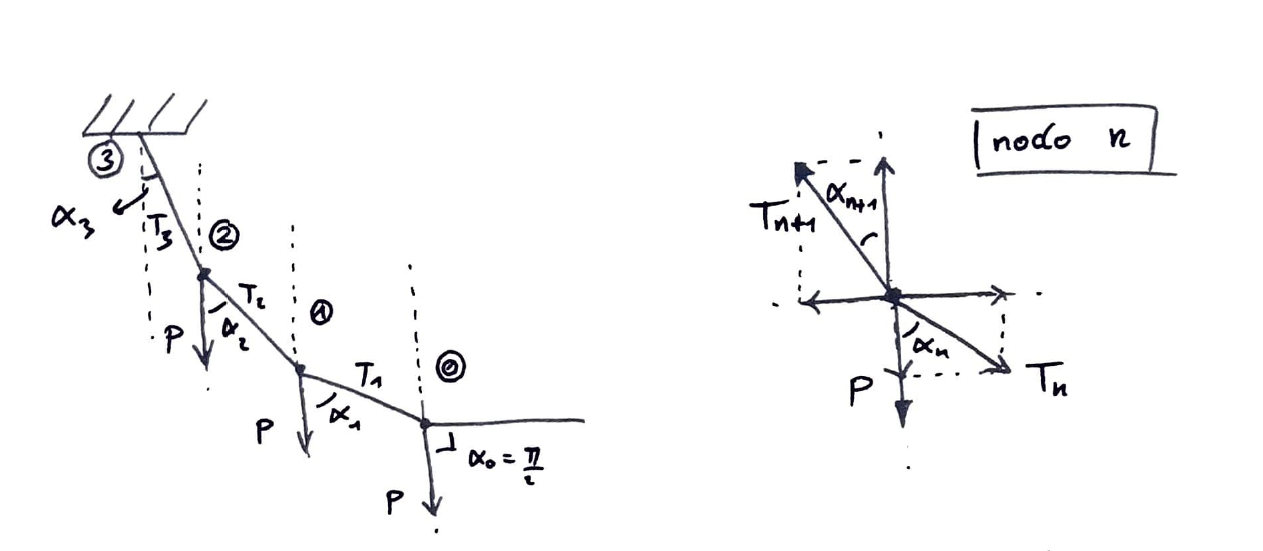 ③
α₃
T₃
②
P
T₂
α₂
①
T₁
P
α₁
⓪
P
α₀ = π/2
nodo n
Tₙ₊₁
αₙ₊₁
αₙ
P
Tₙ